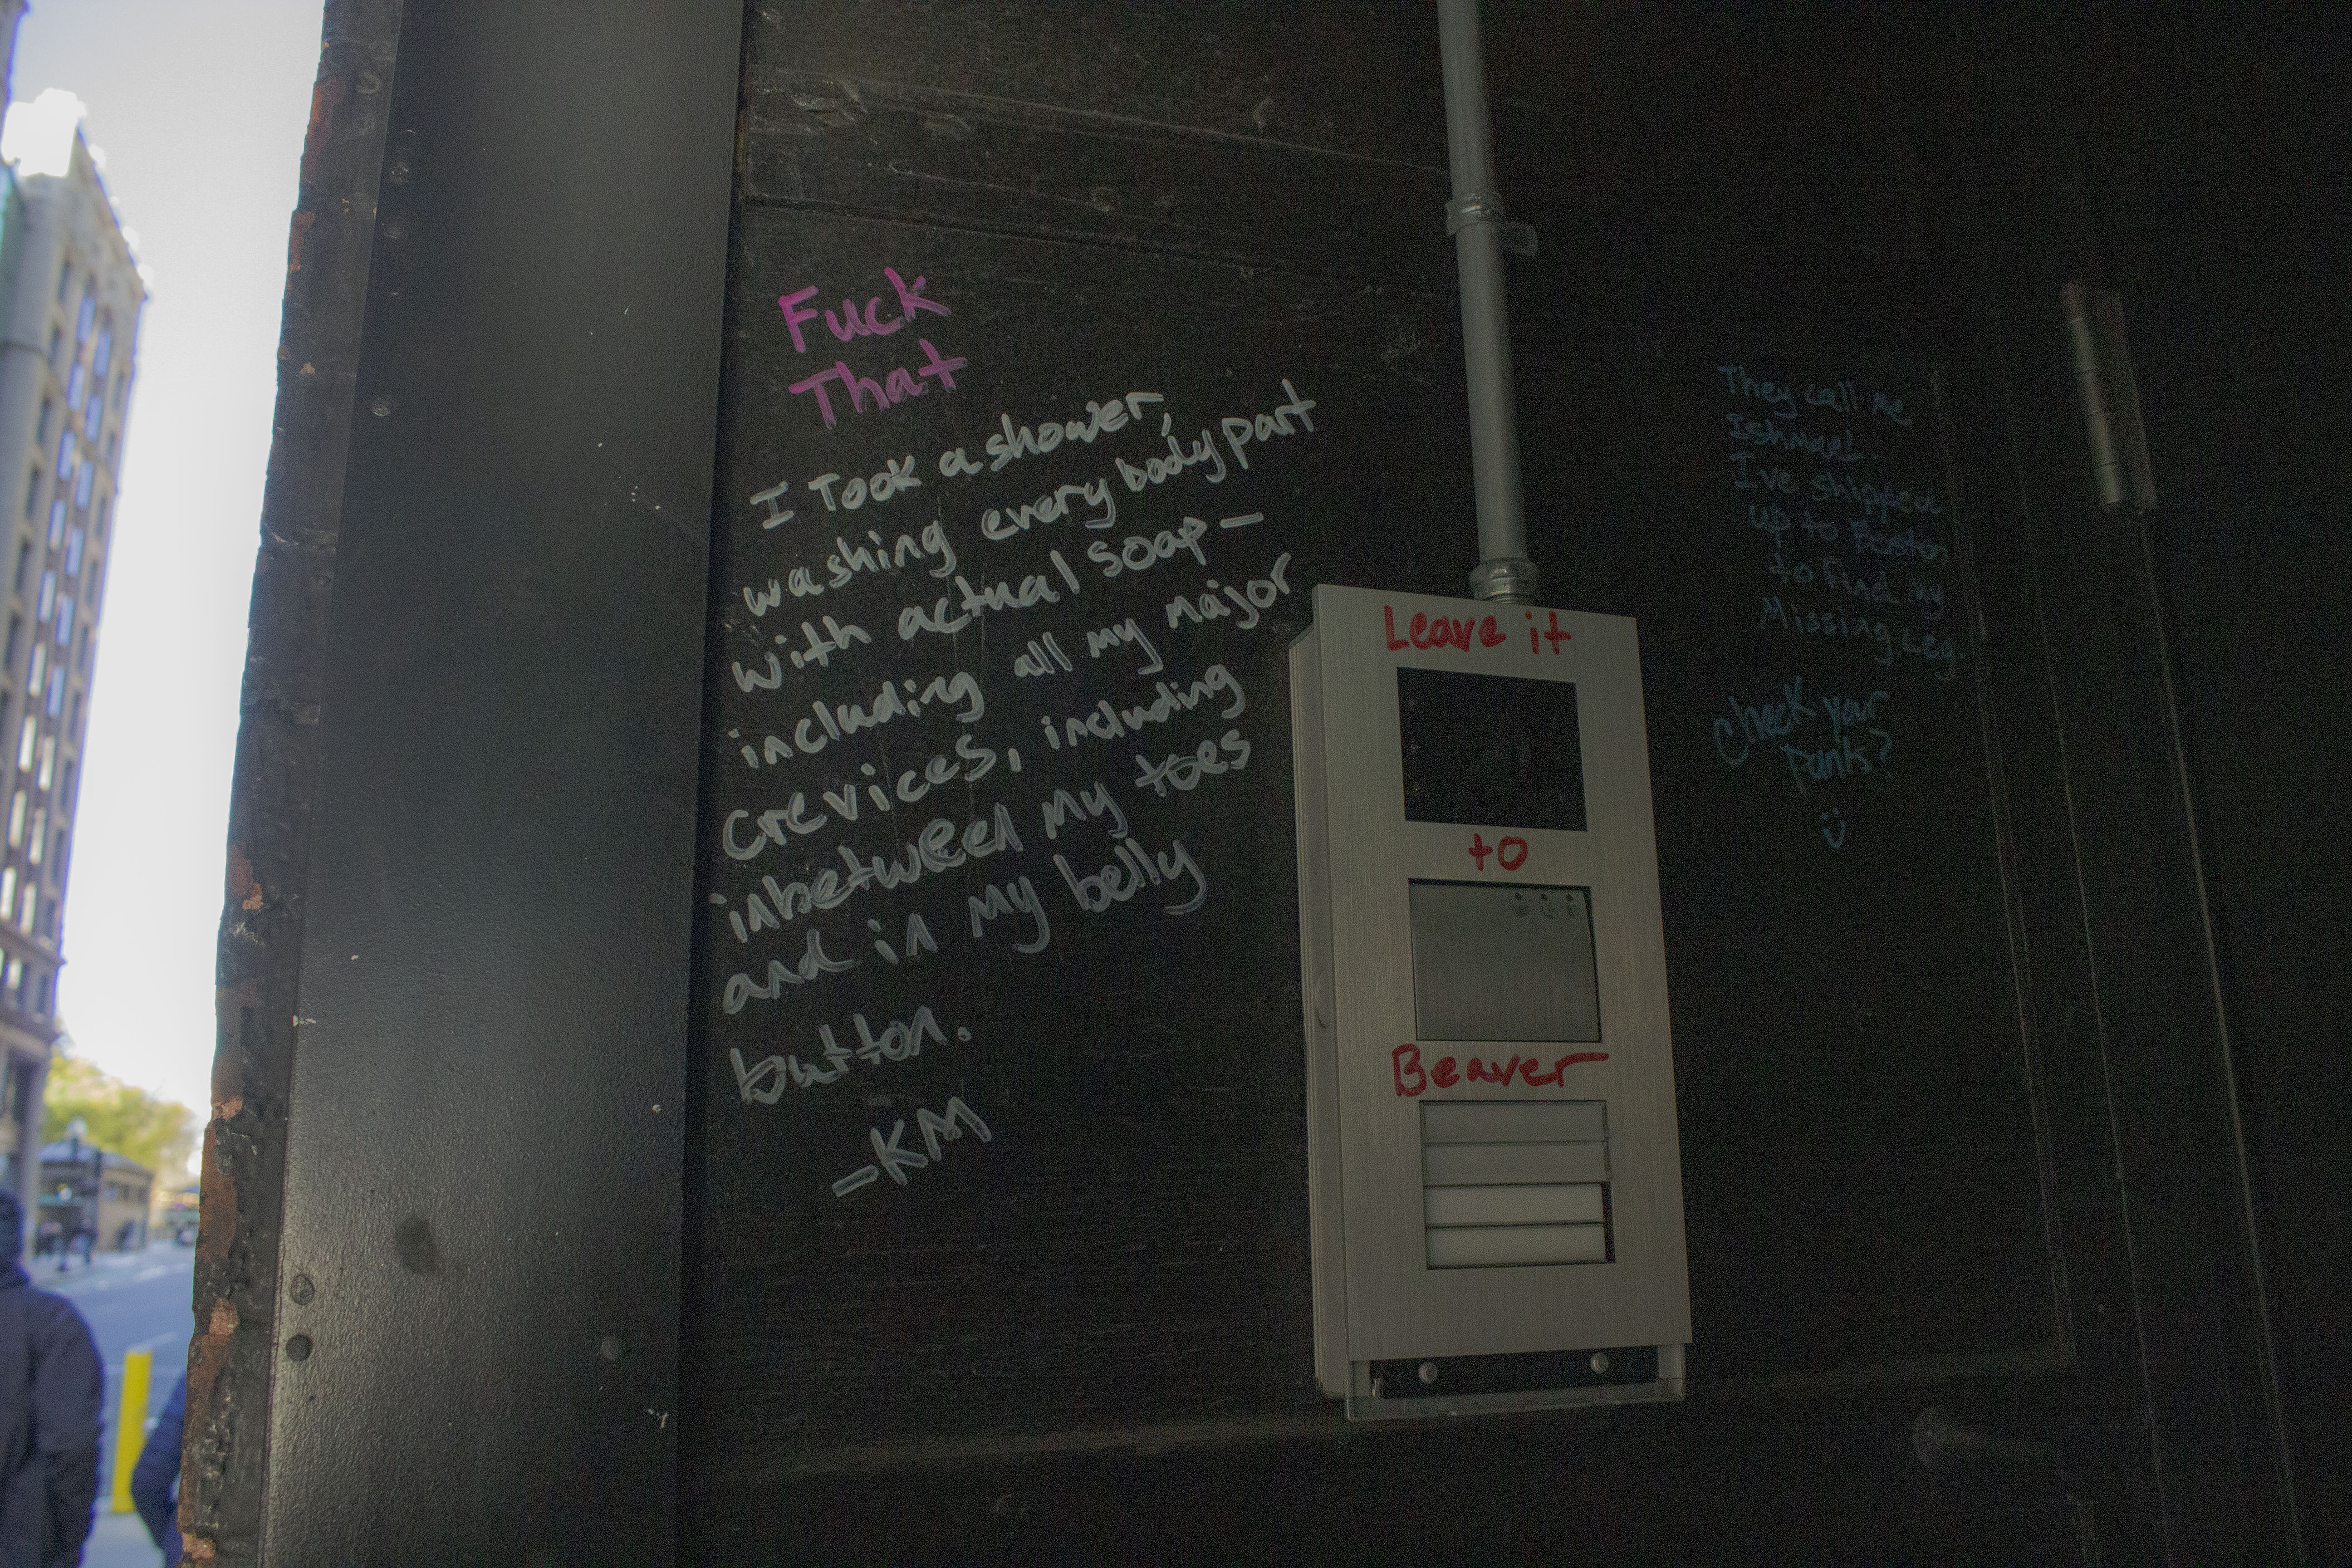 Fuck
That
I Took a shower,
washing every body part
with actual soap —
including all my major
crevices, including
inbetween my toes
and in my belly
button.
-KM
Leave it
to
Beaver
They call me
Ishmael.
I've shipped
up to Boston
to find my
Missing Leg.
Check your
Pants?